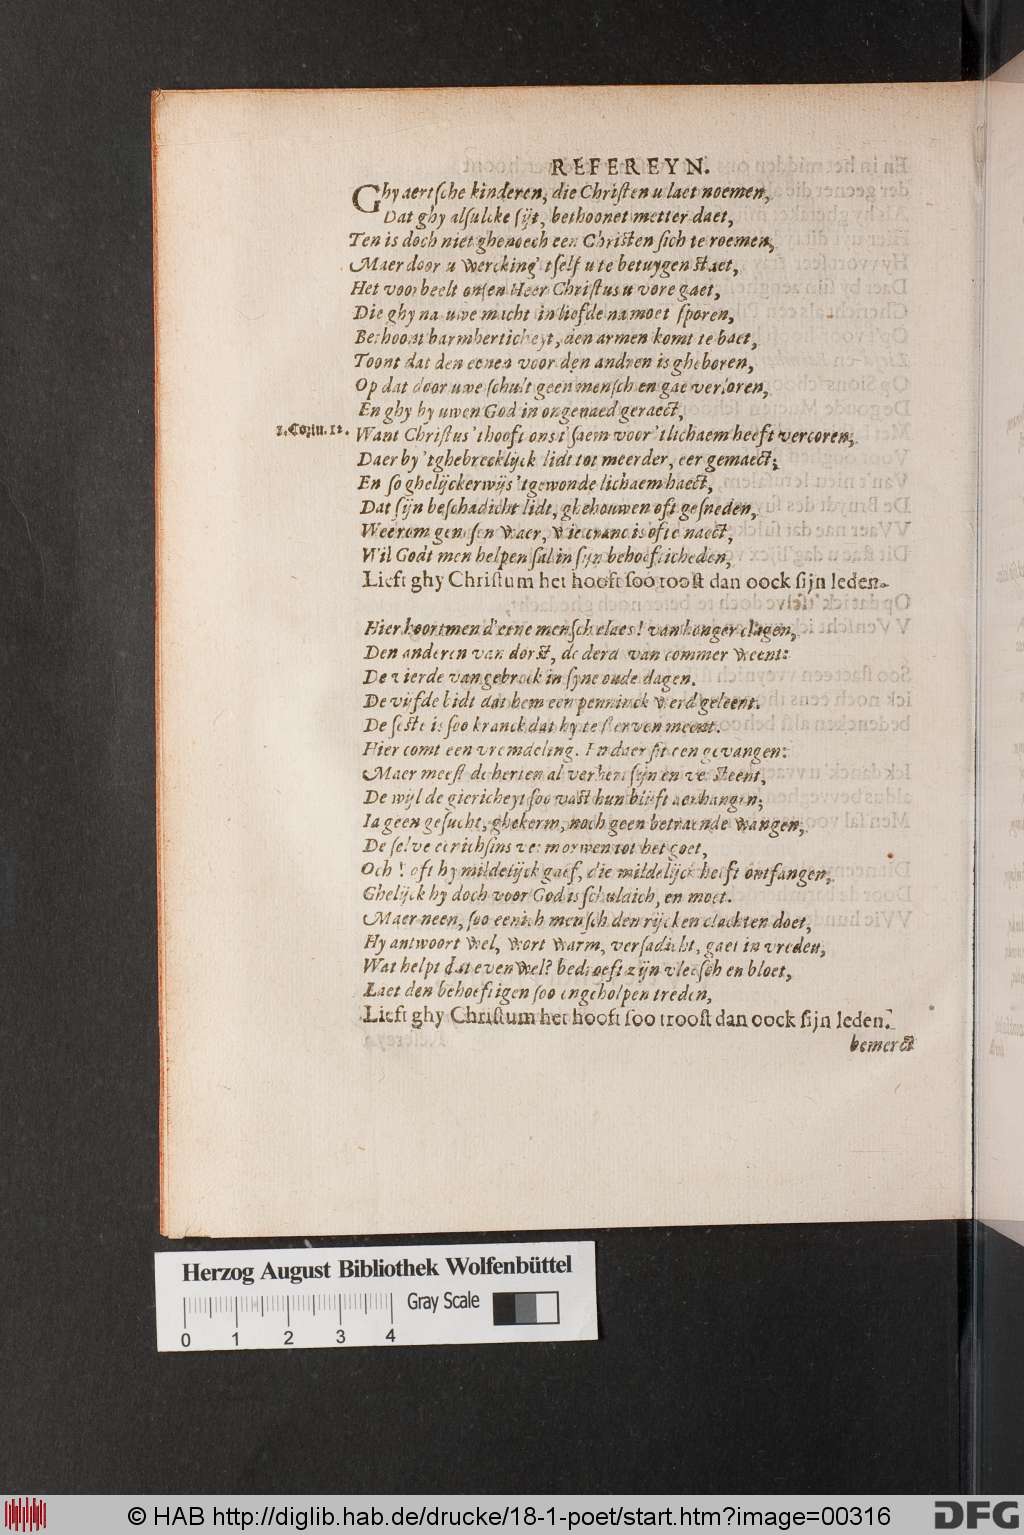 REFEREYN.
Ghy aertsche kinderen, die Christen u laet noemen,
Dat ghy alsulcke sijt, bethoonet metter daet,
Ten is doch niet ghenoech een Christen sich te roemen,
Maer door u wercking' tself u te betuygen staet,
Het voorbeelt onsen Heer Christus u vore gaet,
Die ghy na uwe macht in liefde na moet sporen,
Bethoont barmherticheyt, den armen komt te baet,
Toont dat den eenen voor den andren is gheboren,
Op dat door uwe schult geen menschen gae verloren,
En ghy by uwen God in ongenaed geraect,
1. Corin. 12. Want Christus 'thooft ons t'saem voor 'tlichaem heeft vercoren,
Daer by 'tghebrecklijck lidt tot meerder, eer gemaect;
En so ghelijckerwijs 'tgewonde lichaem haect,
Dat sijn beschadicht lidt, ghehouwen oft gesneden,
Weerom genesen waer, wie cranc is ofte naect,
Wil Godt men helpen sal in sijn behoefticheden,
Lieft ghy Christum het hooft soo troost dan oock sijn leden.
Hier hoortmen d'eene mensch elaes! van honger clagen,
Den anderen van dorst, de derd' van commer weent:
De vierde van gebreck in syne oude dagen.
De vijfde bidt dat hem een penninck werd geleent.
De seste is soo kranck dat hy te sterven meent.
Hier comt een vremdeling. En daer sit een gevangen:
Maer meest de herten al verhert sijn en versteent,
De wijl de giericheyt soo vast hun blijft aenhangen;
Ia geen gesucht, ghekerm, noch geen betraende wangen,
De selve eenichsins vermorwen tot het goet,
Och! oft hy mildelijck gaef, die mildelijck heeft ontfangen,
Ghelijck hy doch voor God is schuldich, en moet.
Maer neen, soo eenich mensch den rijcken clachten doet,
Hy antwoort wel, wort warm, versadicht, gaet in vreden,
Wat helpt dat even wel? bedroeft zijn vleesch en bloet,
Laet den behoeftigen soo ongeholpen treden,
Lieft ghy Christum het hooft soo troost dan oock sijn leden.
bemerct
Herzog August Bibliothek Wolfenbüttel
Gray Scale
0 1 2 3 4
© HAB http://diglib.hab.de/drucke/18-1-poet/start.htm?image=00316
DFG